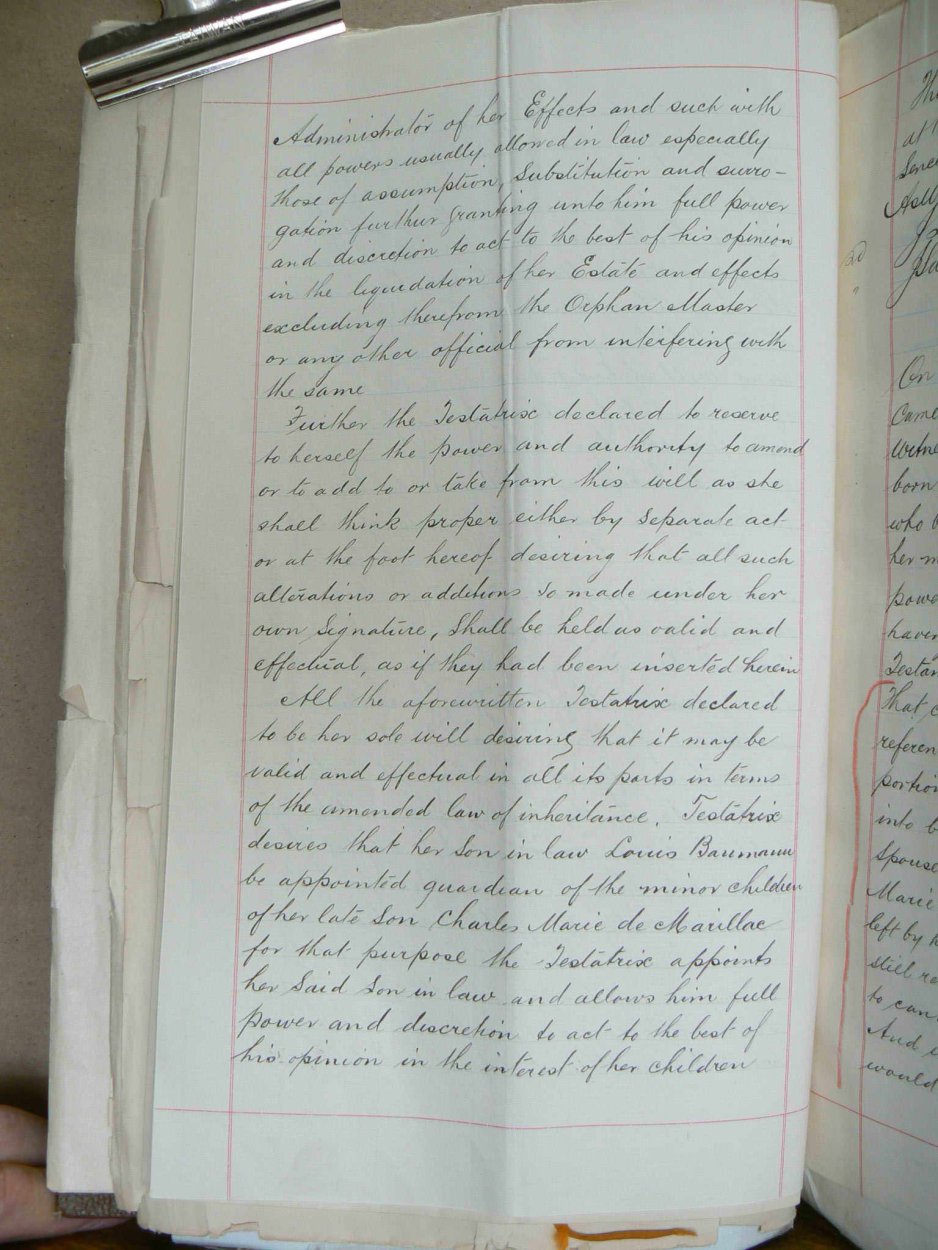 TAIWAN
Administrator of her Effects and such with
all powers usually allowed in law especially
those of assumption, substitution and surro-
gation further granting unto him full power
and discretion to act to the best of his opinion
in the liquidation of her Estate and effects
excluding therefrom the Orphan Master
or any other official from interfering with
the same
Further the Testatrix declared to reserve
to herself the power and authority to amend
or to add to or take from this will as she
shall think proper either by separate act
or at the foot hereof desiring that all such
alterations or additions so made under her
own Signature, Shall be held as valid and
effectual, as if they had been inserted herein
All the aforewritten Testatrix declared
to be her sole will desiring that it may be
valid and effectual in all its parts in terms
of the amended law of inheritance. Testatrix
desires that her Son in law Louis Baumann
be appointed guardian of the minor children
of her late Son Charles Marie de Marillac
for that purpose the Testatrix appoints
her Said Son in law and allows him full
power and discretion to act to the best of
his opinion in the interest of her children
at
On
Came
Witne
born
who
her m
powe
havin
Testa
That
referen
portion
into b
Spouse
Marie
left by h
still re
to can
And
would